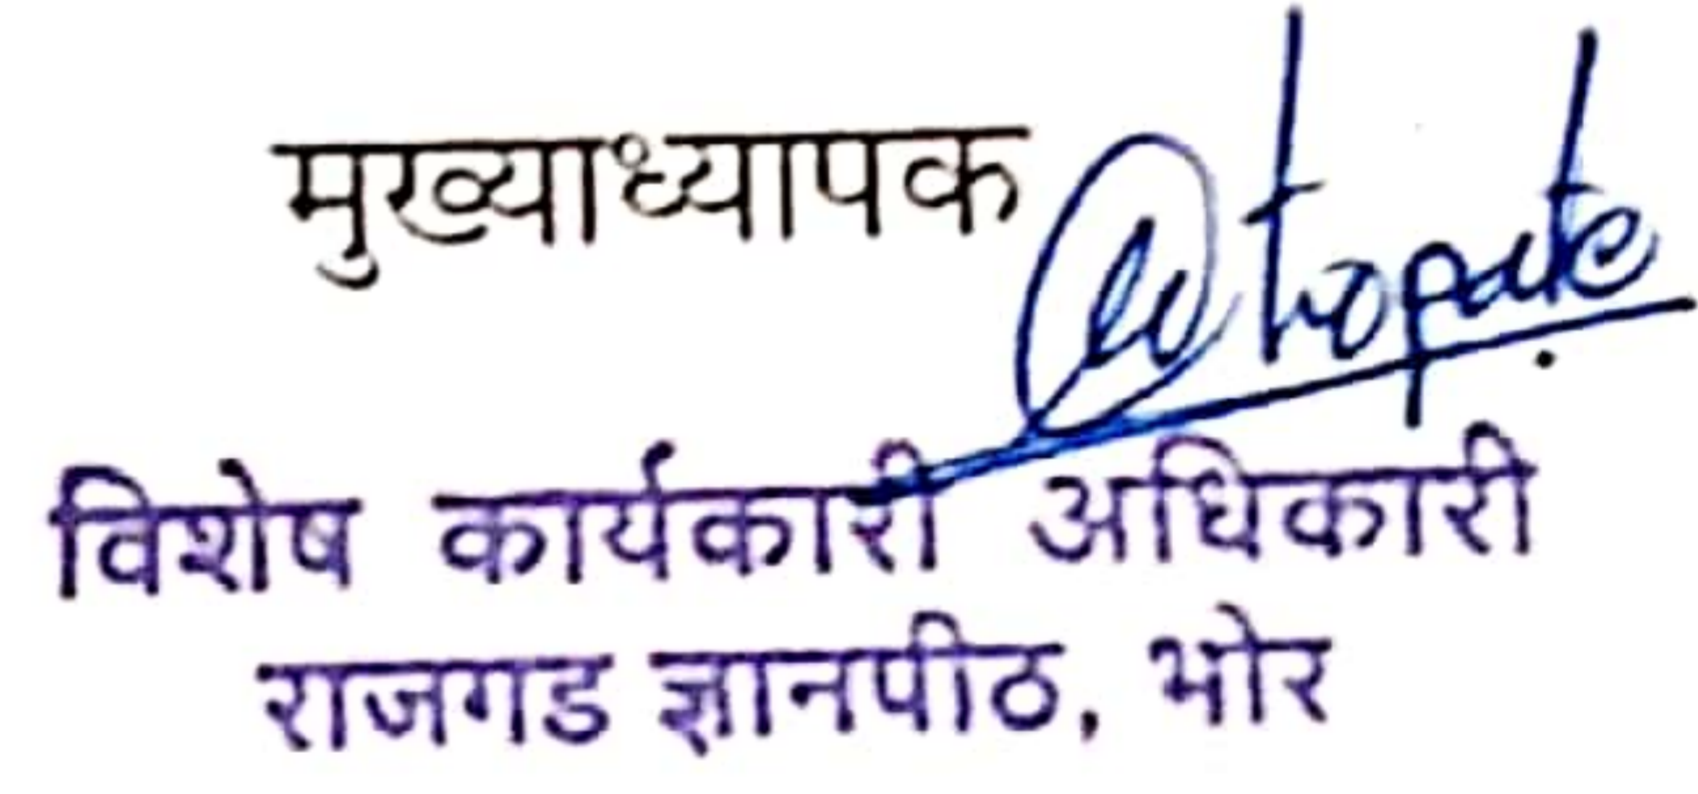 मुख्याध्यापक
विशेष कार्यकारी अधिकारी
राजगड ज्ञानपीठ, भोर